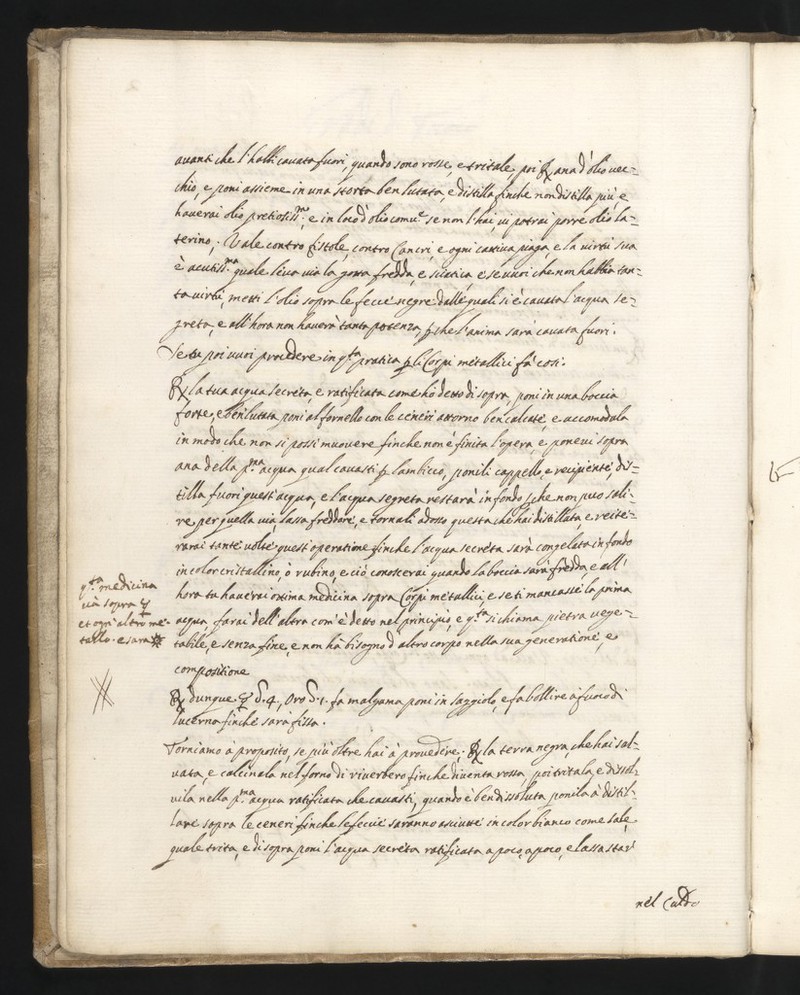 avanti che l'habbi cavata fuori, quando sono rosse, e tritale poi ℞ ana d'olio vec=
chio, e poni assieme in una storta ben lutata, e distilla finche non distilla più, e
haverai olio pretiosiss.mo, e in loco d'olio comu.e se non l'hai, vi potrai porre olio la=
terino; Vale contro fistole, contro Cancri, e ogni cattiva piaga, e la virtù sua
è acutiss.ma quale leva via la gotta fredda, e sciatica, e se vuoi che non habbia tan=
ta virtù, metti l'olio sopra le fecce negre dalle quali si è cavata l'acqua se=
greta, e all'hora non haverà tanta potenza, p che l'anima sarà cavata fuori.
Se tu poi vuoi procedere in q.ta pratica p li Corpi metallici fà cosi.
℞ la tua acqua secreta, e ratificata come hò detto di sopra, poni in una boccia
forte, e ben lutata poni al fornello con le ceneri attorno ben calcate, e accomodala
in modo che non si possi muovere finche non è finita l'opera, e ponevi sopra
ana della p.ma acqua qual cavasti p lambicco, ponili cappello, e recipiente, dis=
tilla fuori quest'acqua, e l'acqua segreta restarà in fondo p che non puo sali=
re per quella via, lassa freddare, e tornali adosso questa che hai distillata, e reite=
rarai tante volte quest'operatione finche l'acqua secreta sarà congelata in fondo
in color cristallino, ò rubino, e ciò conoscerai quando la boccia sarà fredda, e all'
hora tu haverai ottima medicina sopra Corpi metallici, e se ti mancasse la prima
acqua, farai dell'altra com'è detto nel principio, e q.sta si chiama pietra vege=
tabile, e senza fine, e non hà bisogno d'altro corpo nella sua generatione, e
compositione
q.ta medicina
và sopra ☿
et ogn'altro me=
tallo. e sara
℞ dunque ☿ d. 4, Oro d. 1. fa malgama poni in saggiolo, e fa bollire a fuoco di
lucerna finche sarà fissa.
Torniamo à proposito, se più oltre hai à provedere. ℞ la terra negra, che hai sal=
vata, e calcinala nel forno di riverbero finche diventa rossa, poi tritala, e dissol=
vila nella p.ma acqua ratificata che cavasti, quando è ben dissoluta ponila à distil=
lare sopra le ceneri finche le fecce saranno asciutte in color bianco come sale,
quale trita, e di sopra poni l'acqua secreta ratificata a poco, a poco, e lassa star
nel Caldo